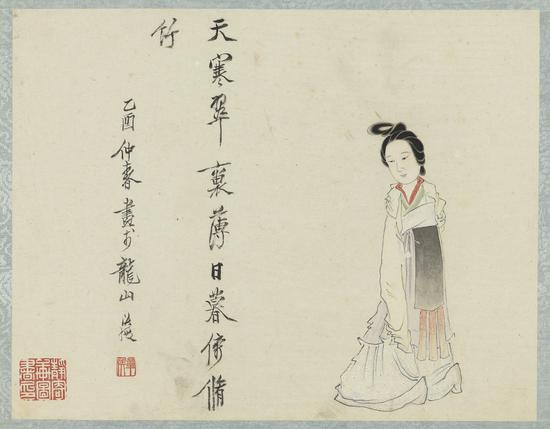 天寒翠褎薄日暮倚脩
竹
乙酉仲春畫于龍山